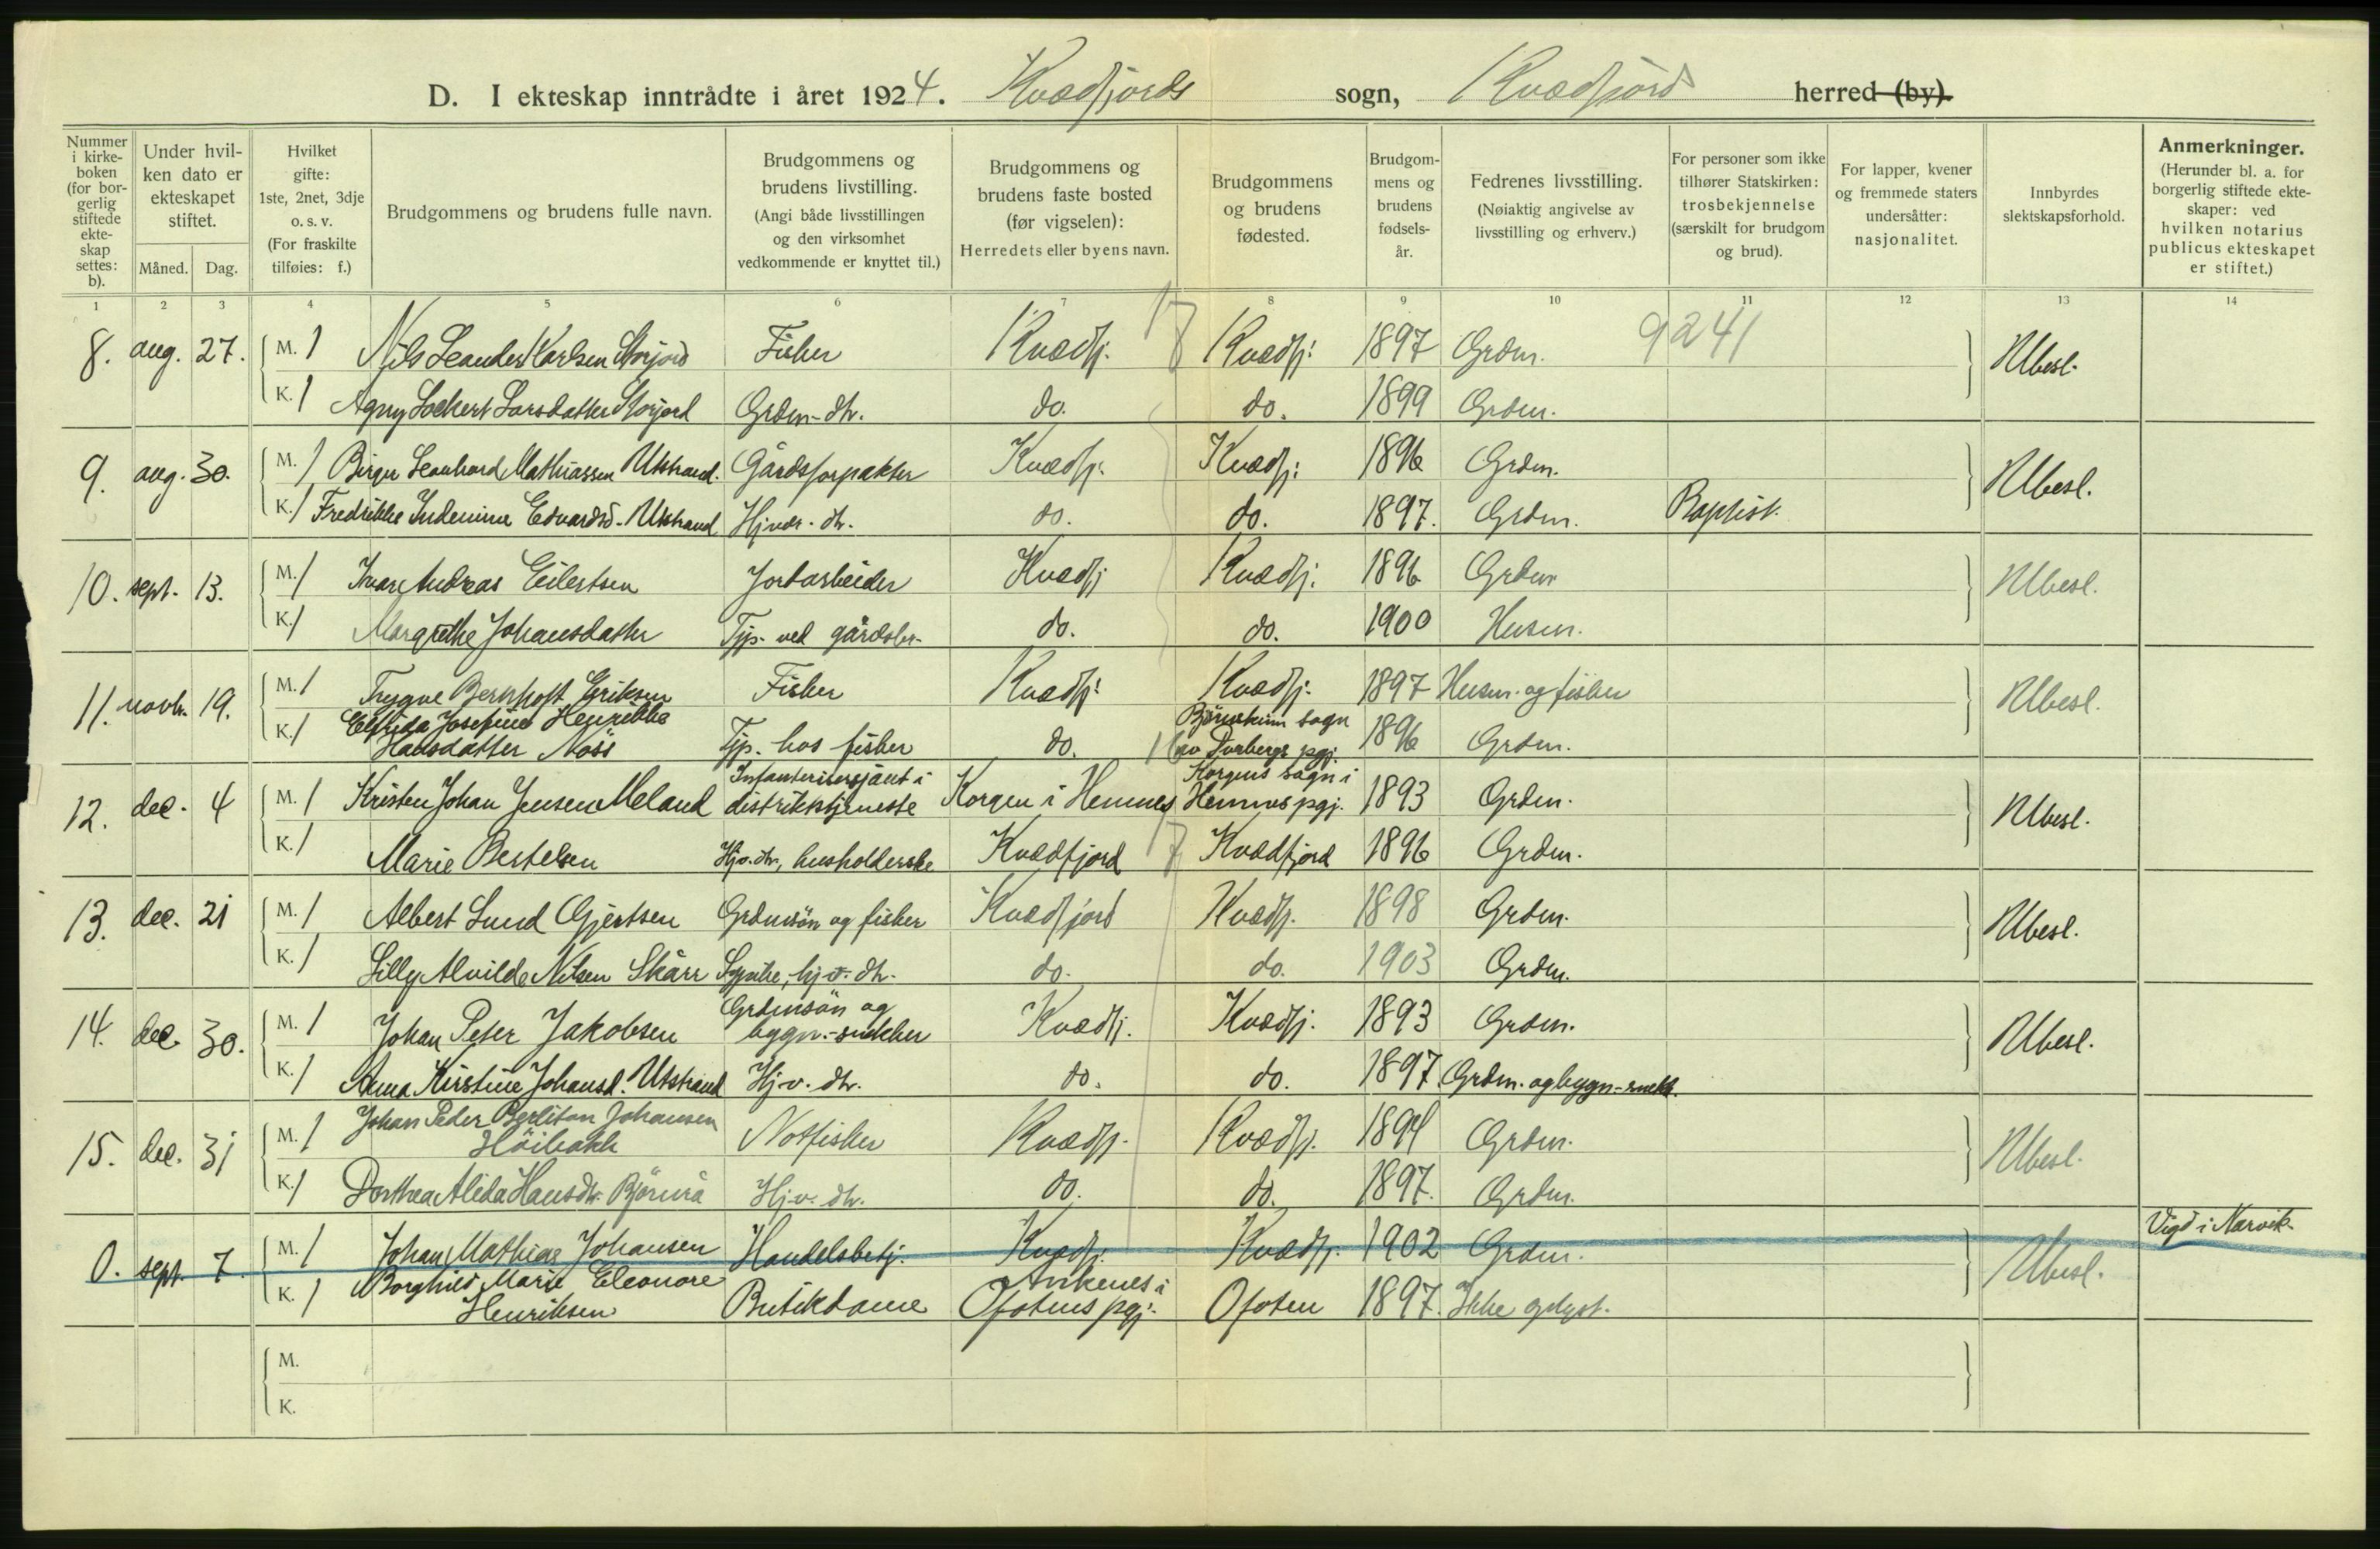 D. I ekteskap inntrådte i året 1924. Kvædfjords sogn, Kvædfjord herred (by).
Nummer i kirkeboken (for borgerlig stiftede ekteskap settes: b).
Under hvilken dato er ekteskapet stiftet.
Måned. Dag.
Hvilket gifte: 1ste, 2net, 3dje o. s. v. (For fraskilte tilføies: f.)
Brudgommens og brudens fulle navn.
Brudgommens og brudens livstilling. (Angi både livsstillingen og den virksomhet vedkommende er knyttet til.)
Brudgommens og brudens faste bosted (før vigselen): Herredets eller byens navn.
Brudgommens og brudens fødested.
Brudgommens og brudens fødselsår.
Fedrenes livsstilling. (Nøiaktig angivelse av livsstilling og erhverv.)
For personer som ikke tilhører Statskirken: trosbekjennelse (særskilt for brudgom og brud).
For lapper, kvener og fremmede staters undersåtter: nasjonalitet.
Innbyrdes slektskapsforhold.
Anmerkninger. (Herunder bl. a. for borgerlig stiftede ekteskaper: ved hvilken notarius publicus ekteskapet er stiftet.)
1 2 3 4 5 6 7 8 9 10 11 12 13 14
8. aug. 27. M. 1 Nils Leander Karlsen Storjord Fisker Kvædfj. 17 Kvædfj. 1897 Grdm. 9241 Ubesl.
K. 1 Agny Lockert Larsdatter Storjord Grdm.-dtr. do. do. 1899 Grdm.
9. aug. 30. M. 1 Birger Leonhard Mathiassen Utstrand. Gårdsforpakter Kvædfj. Kvædfj. 1896 Grdm. Ubesl.
K. 1 Fredrikke Indemine Edvardsd. Utstrand Hjvær. dtr. do. do. 1897. Grdm. Baptist.
10. sept. 13. M. 1 Ivar Andreas Eilertsen Jordarbeider Kvædfj Kvædfj. 1896 Grdm Ubesl.
K. 1 Margrethe Johansdatter Tjp. ved gårdsbr. do. do. 1900 Husm.
11. novbr. 19. M. 1 Trygve Bernhoft Eriksen Fisker Kvædfj. Kvædfj. 1897 Husm. og fisker Ubesl.
K. 1 Elfrida Josefine Henrikka Hansdatter Nöss Tjp. hos fisker do. 16 sogn av pgj. 1896 Grdm.
12. dec. 4 M. 1 Kristen Johan Jensen Meland Infanterisersjant i distriktstjeneste Korgen i Hemnes Korgens sogn i Hemnes pgj. 1893 Grdm. Ubesl.
K. 1 Marie Bertelsen Hjv. dtr., husholderske Kvædfjord 17 Kvædfjord 1896 Grdm.
13. dec. 21 M. 1 Albert Lund Gjertsen Grdmsön og fisker Kvædfjord Kvædfj. 1898 Grdm. Ubesl.
K. 1 Lilly Alvilde Nilsen Skårr Syerske, hjv. dtr. do. do. 1903 Grdm.
14. dec. 30. M. 1 Johan Peter Jakobsen Grdmsön og bygn.-snekker Kvædfj. Kvædfj. 1893 Grdm. Ubesl.
K. 1 Anna Kirstine Johansd. Utstrand Hjv. dtr. do. do. 1897 Grdm. og bygn.-snekk.
15. dec. 31 M. 1 Johan Peder Berliton Johansen Höibakk Notfisker Kvædfj. Kvædfj. 1894 Grdm. Ubesl.
K. 1 Dorthea Alida Hansdtr. Björnrå Hjv. dtr. do. do. 1897. Grdm.
0. sept. 7. M. 1 Johan Mathias Johansen Handelsbetj. Kvædfj. Kvædfj. 1902 Grdm. Ubesl. Vigd i Narvik.
K. 1 Borghild Marie Eleonore Henriksen Butikdame Ankenes i Ofotens pgj. Ofoten 1897. Ikke oplyst.
M.
K.